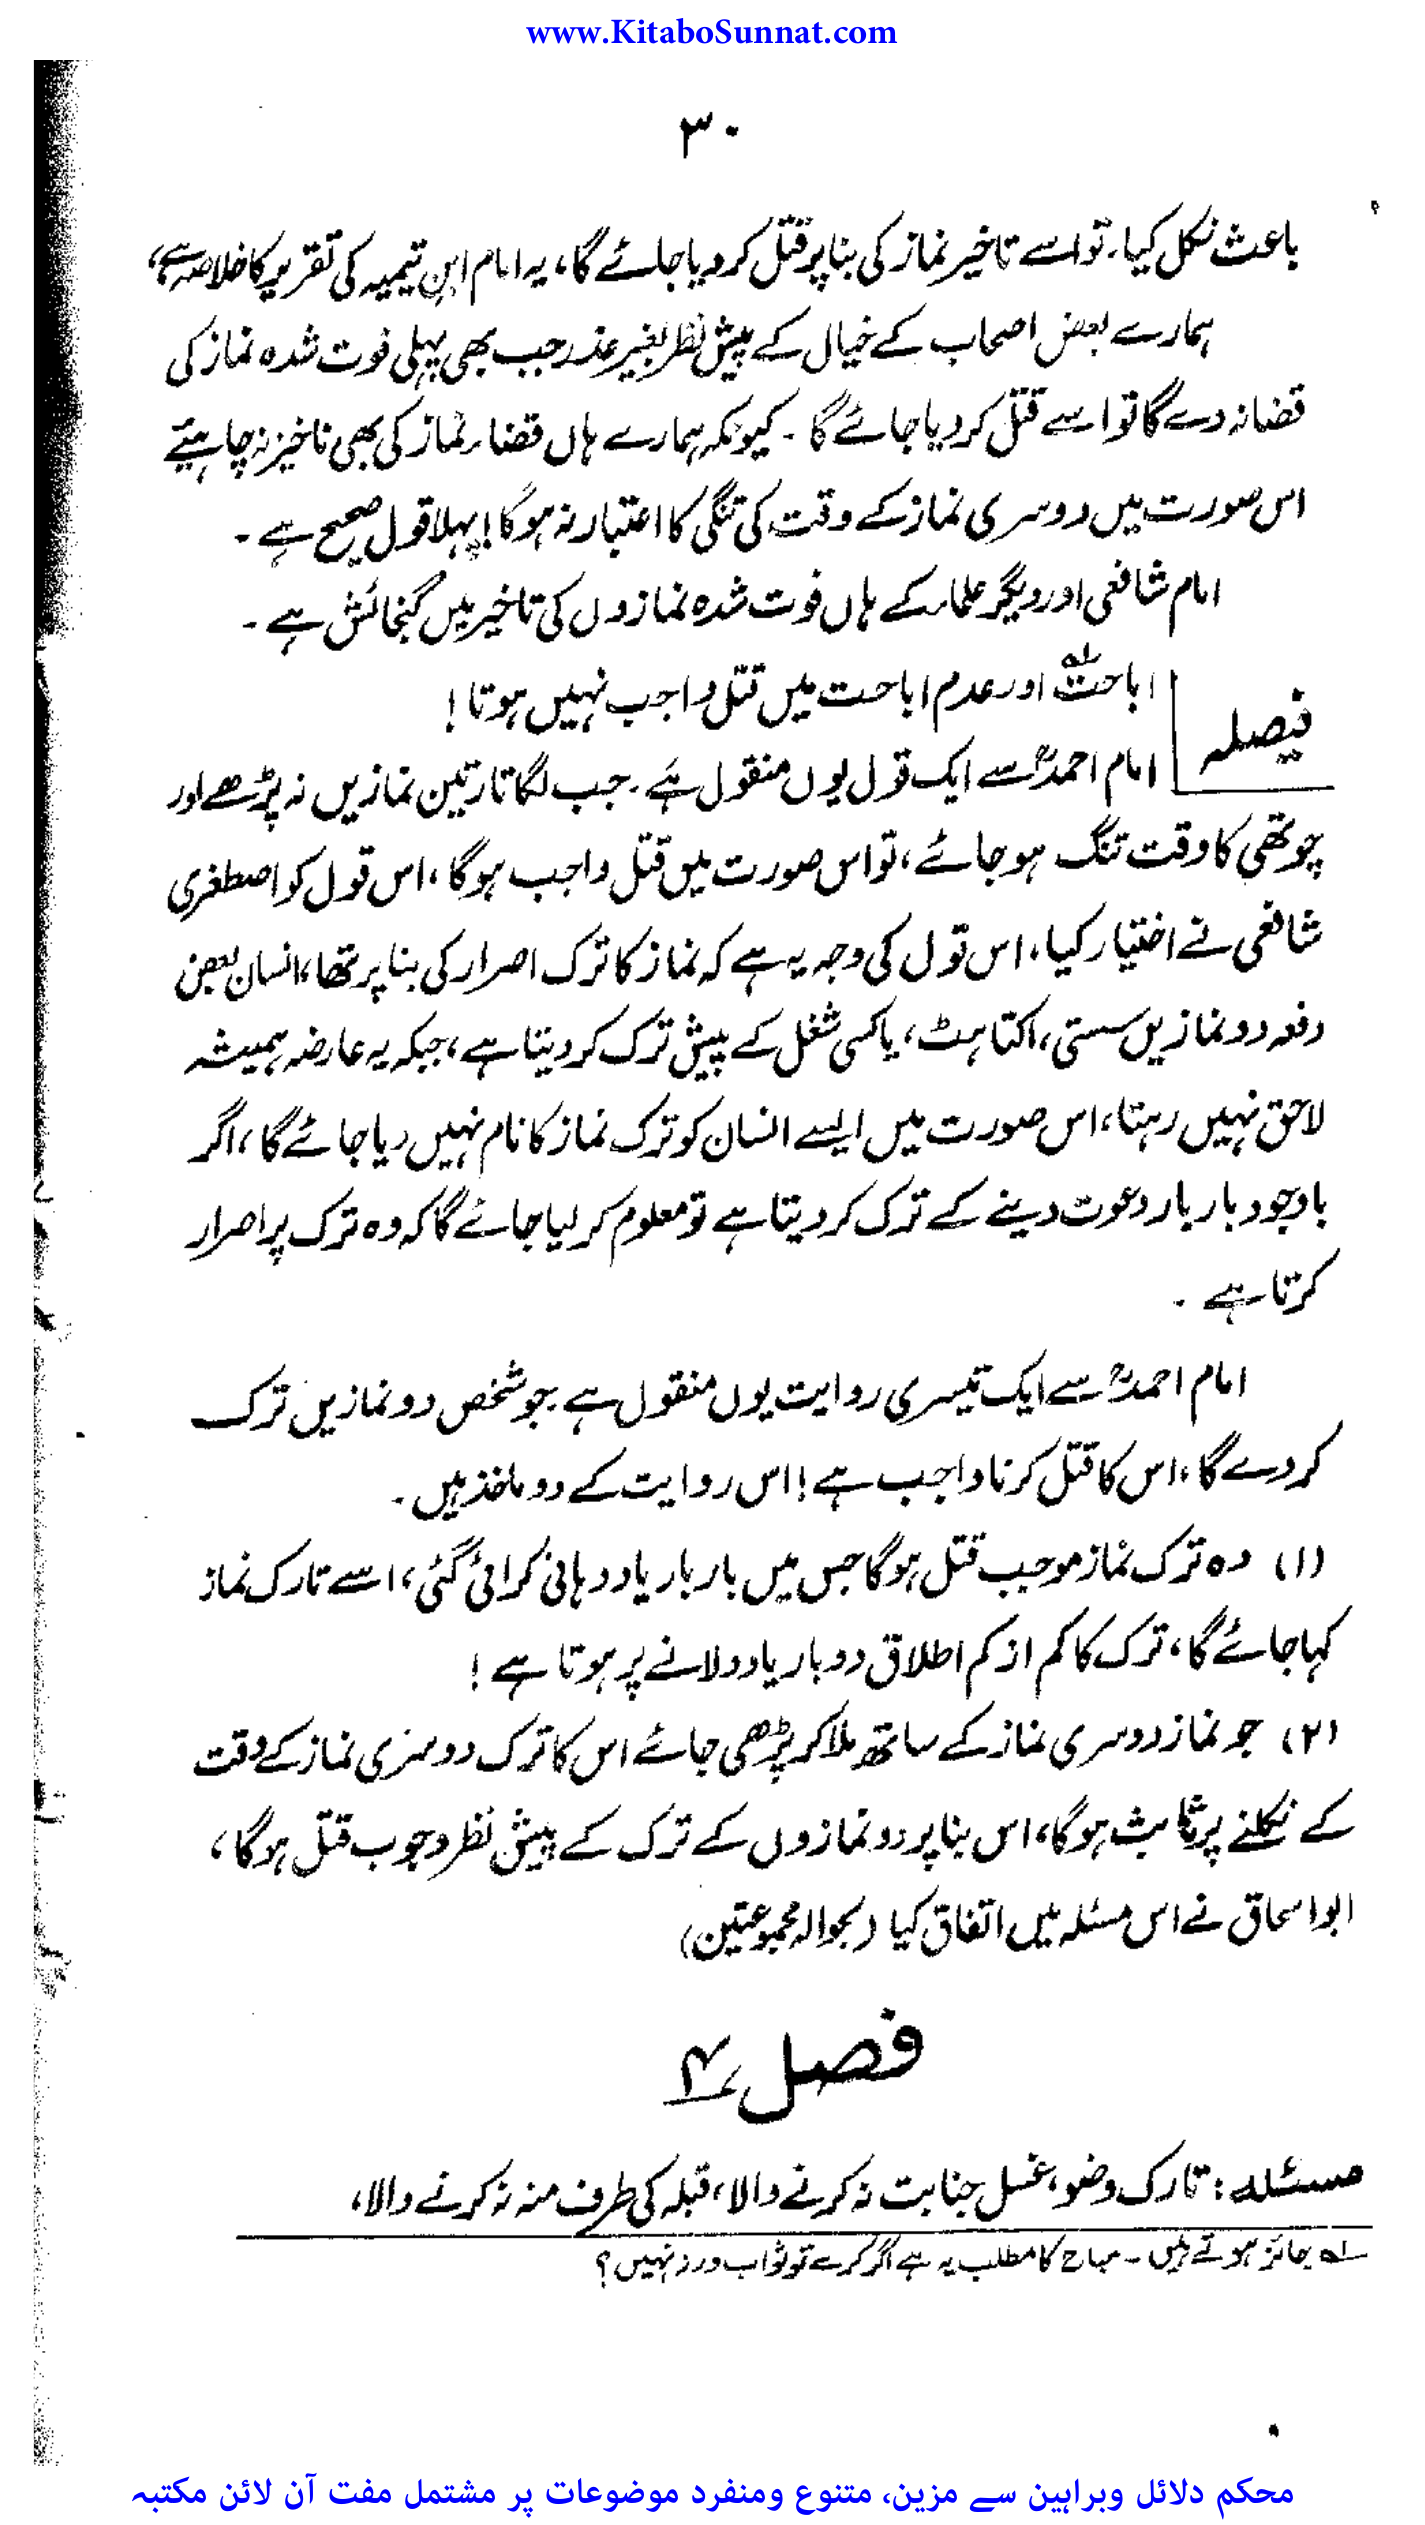 www.KitaboSunnat.com
۳۰
باعث نکل کیا۔ تو اسے تاخیر نماز کی بنا پر قتل کر دیا جائے گا، یہ امام ابن تیمیہ کی تقریر کا خلاصہ ہے،
ہمارے بعض اصحاب کے خیال کے پیش نظر بغیر عذر جب بھی پہلی فوت شدہ نماز کی
قضا نہ دے گا تو اسے قتل کر دیا جائے گا ۔ کیونکہ ہمارے ہاں قضاء نماز کی بھی تاخیر نہ چاہیئے
اس صورت میں دوسری نماز کے وقت کی تنگی کا اعتبار نہ ہوگا! پہلا قول صحیح ہے ۔
امام شافعی اور دیگر علماء کے ہاں فوت شدہ نمازوں کی تاخیر میں گنجائش ہے ۔
فیصلہ اباحت؁ٰ اور عدم اباحت میں قتل واجب نہیں ہوتا !
امام احمدؒ سے ایک قول یوں منقول ہے ۔ جب لگاتار تین نمازیں نہ پڑھے اور
چوتھی کا وقت تنگ ہو جائے، تو اس صورت میں قتل واجب ہوگا، اس قول کو اصطغری
شافعی نے اختیار کیا، اس قول کی وجہ یہ ہے کہ نماز کا ترک اصرار کی بنا پر تھا، انسان بعض
دفعہ دو نمازیں سستی، اکتاہٹ، یا کسی شغل کے پیش ترک کر دیتا ہے، جبکہ یہ عارضہ ہمیشہ
لاحق نہیں رہتا، اس صورت میں ایسے انسان کو ترک نماز کا نام نہیں دیا جائے گا، اگر
باوجود بار بار دعوت دینے کے ترک کر دیتا ہے تو معلوم کر لیا جائے گا کہ وہ ترک پر اصرار
کرتا ہے ۔
امام احمدؒ سے ایک تیسری روایت یوں منقول ہے جو شخص دو نمازیں ترک
کر دے گا، اس کا قتل کرنا واجب ہے! اس روایت کے دو ماخذ ہیں ۔
(۱) وہ ترک نماز موجب قتل ہوگا جس میں بار بار یاد دہانی کرائی گئی، اسے تارک نماز
کہا جائے گا، ترک کا کم از کم اطلاق دو بار یاد دلانے پر ہوتا ہے !
(۲) جو نماز دوسری نماز کے ساتھ ملا کر پڑھی جائے اس کا ترک دوسری نماز کے وقت
کے نکلنے پر ثابت ہوگا، اس بنا پر دو نمازوں کے ترک کے پیش نظر وجوب قتل ہوگا،
ابو اسحاق نے اس مسئلہ میں اتفاق کیا (بحوالہ مجموعتین)
فصل ۴
مسئلہ : تارک وضو، غسل جنابت نہ کرنے والا، قبلہ کی طرف منہ نہ کرنے والا،
؁ٰ جائز ہوتے ہیں ۔ مباح کا مطلب یہ ہے اگر کرے تو ثواب ورنہ نہیں؟
محکم دلائل وبراہین سے مزین، متنوع ومنفرد موضوعات پر مشتمل مفت آن لائن مکتبہ